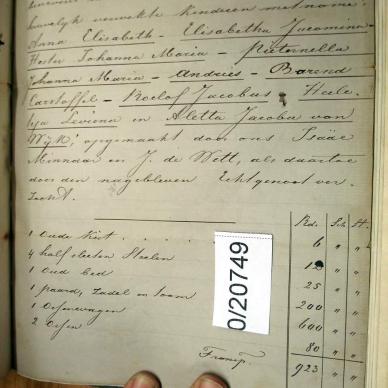 huwelijk verwekte kinderen met name:
Anna Elisabeth - Elisabetha Jacomina -
Hester Johanna Maria - Pieternella
Johanna Maria - Andries - Barend
Carstoffel - Roelof Jacobus - Heele-
tja Leviena en Aletta Jacoba van
Wijk; opgemaakt door ons Isaac
Minnaar en J. de Wett, als daartoe
door den nagebleven Echtgenoot ver-
zocht.
Rd. Sch St.
1 Oude Kist . . . . 6 " "
4 half sleeten Stoelen 12 " "
1 Oud bed 25 " "
1 paard, zadel en toom 200 " "
1 Ossenwagen 600 " "
2 Ossen 80 " "
Transp. 923 " "
0/20749